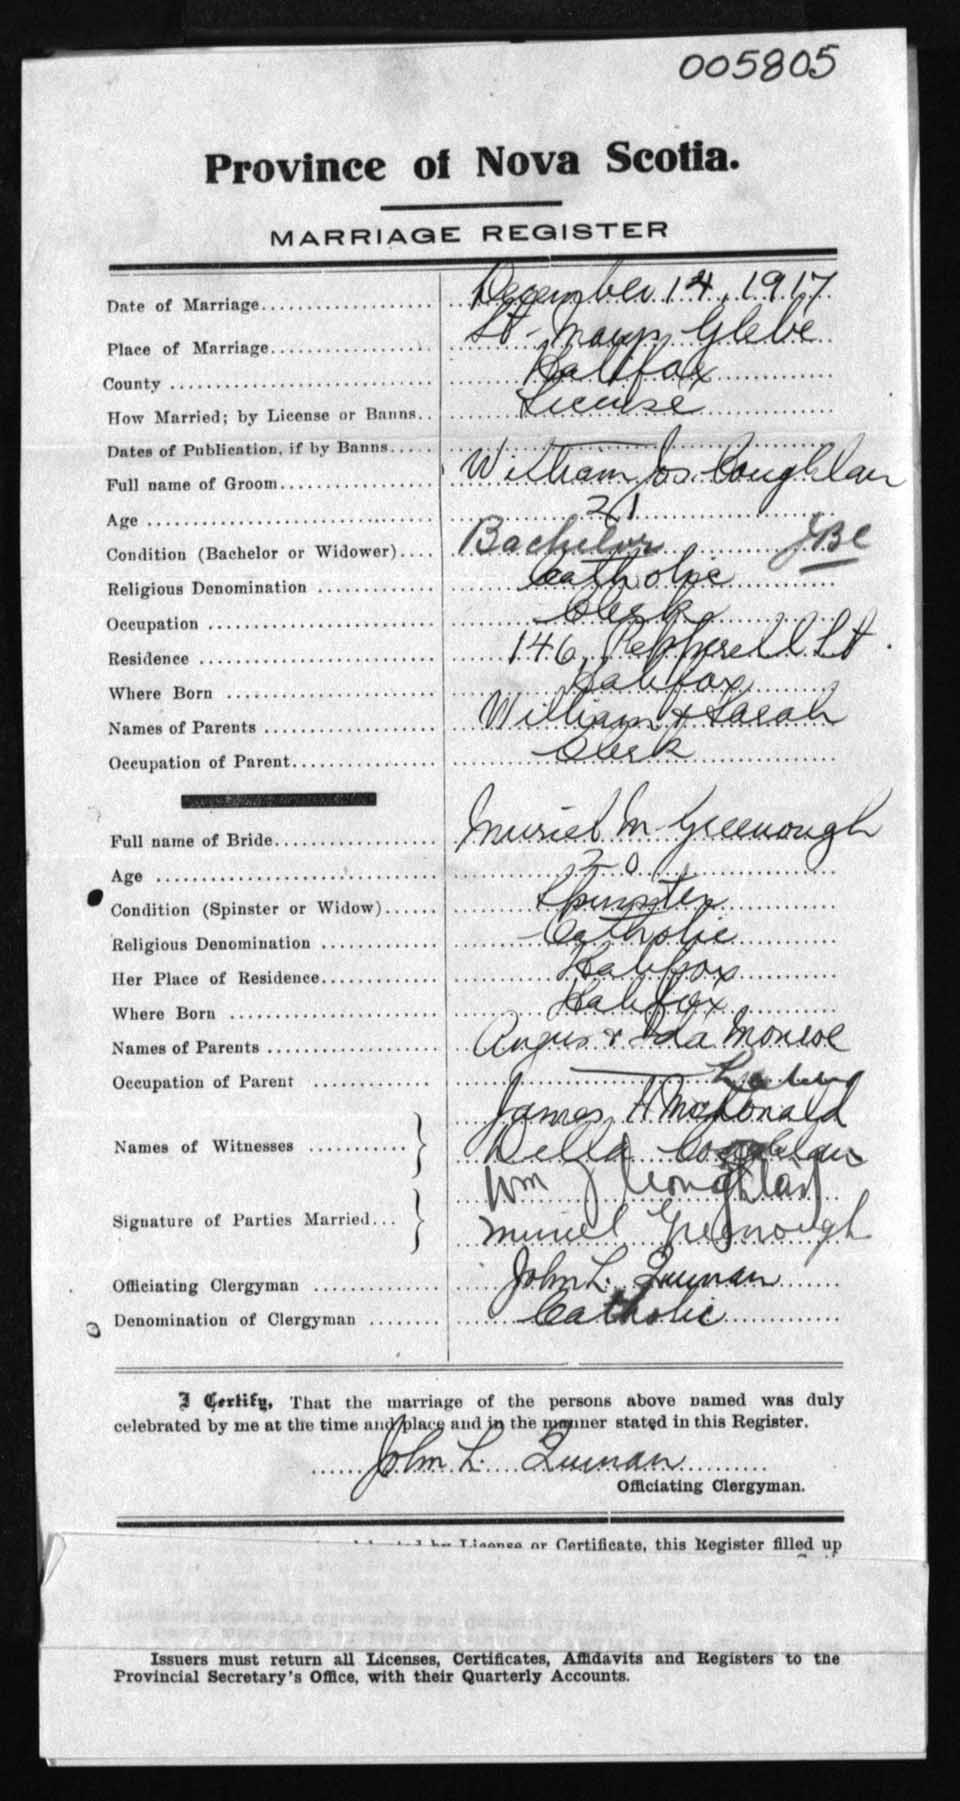 005805
Province of Nova Scotia.
MARRIAGE REGISTER
Date of Marriage December 14, 1917
Place of Marriage St. Marys Glebe
County Halifax
How Married; by License or Banns License
Dates of Publication, if by Banns
Full name of Groom William Jos. Coughlan
Age 21
Condition (Bachelor or Widower) Bachelor JBC
Religious Denomination Catholic
Occupation Clerk
Residence 146 Pepperell St
Where Born Halifax
Names of Parents William & Sarah
Occupation of Parent Clerk
Full name of Bride Muriel M Greenough
Age 20
Condition (Spinster or Widow) Spinster
Religious Denomination Catholic
Her Place of Residence Halifax
Where Born Halifax
Names of Parents Angus & Ida Monroe
Occupation of Parent
Names of Witnesses James H McDonald
Della Coughlan
Signature of Parties Married Wm J Coughlan
Muriel Greenough
Officiating Clergyman John L. Quinan
Denomination of Clergyman Catholic
I Certify, That the marriage of the persons above named was duly
celebrated by me at the time and place and in the manner stated in this Register.
John L. Quinan
Officiating Clergyman.
by License or Certificate, this Register filled up
Issuers must return all Licenses, Certificates, Affidavits and Registers to the
Provincial Secretary's Office, with their Quarterly Accounts.